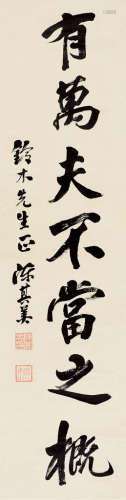 有萬夫不當之概
鈴木先生正 陳其美